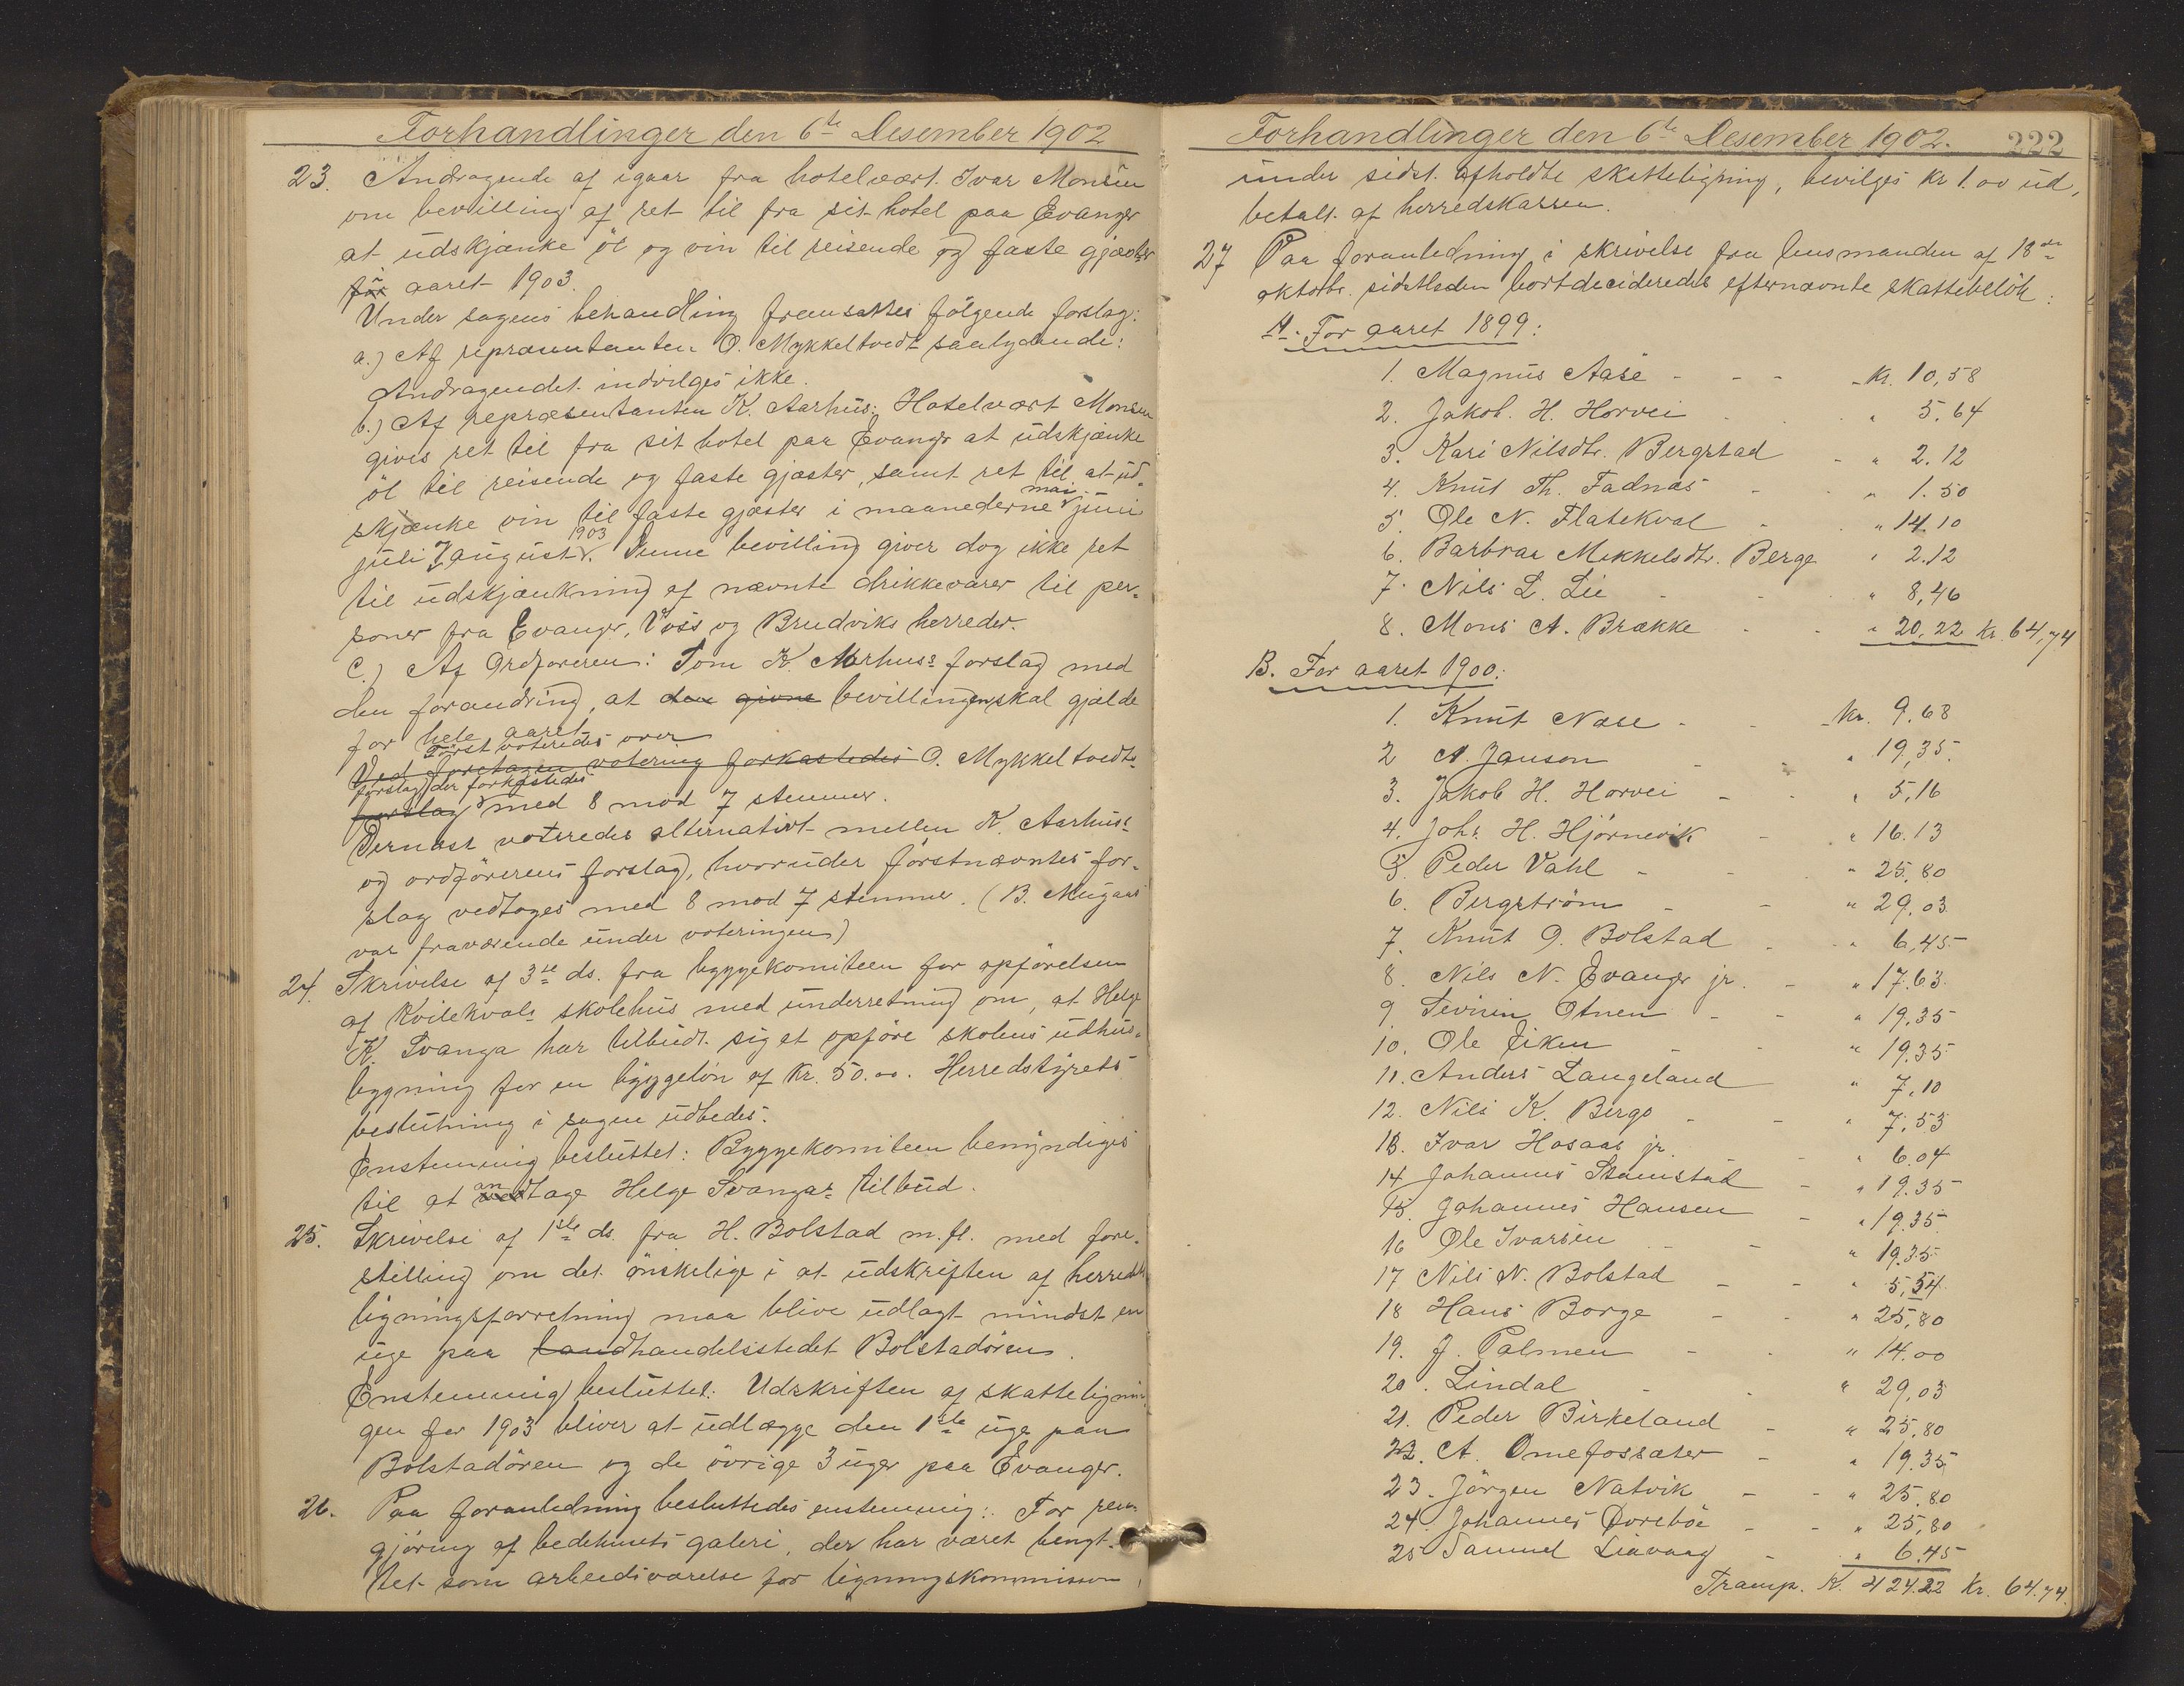 Forhandlinger den 6te Desember 1902
23. Andragende af igaar fra hotelvært Ivar Monsen
om bevilling af ret til fra sit hotel paa Evanger
at udskjænke öl og vin til reisende og faste gjæster
för aaret 1903.
Under sagens behandling fremsattes fölgende forslag:
a.) Af repræsentanten O. Mykkeltvedt saalydende:
Andragendet indvilges ikke.
b.) Af repræsentanten K. Aarhus: Hotelvært Monsen
gives ret til fra sit hotel paa Evanger at udskjænke
öl til reisende og faste gjæster, samt ret til at ud-
skjænke vin til faste gjæster i maanederne mai, juni
juli & august 1903. Denne bevilling giver dog ikke ret
til udskjænkning af nævnte drikkevarer til per-
soner fra Evanger, Voss og Brudviks herreder.
c.) Af Ordföreren: Som K. Aarhus's forslag med
den forandring, at den givne bevillingen skal gjælde
for hele aaret.
Först voteredes over
Ved foretagen votering forkastedes O. Mykkeltvedts
forslag, der forkastedes
forslag med 8 mod 7 stemmer.
Dernæst voteredes alternativt mellem K. Aarhus's
og ordförerens forslag, hvorunder förstnævntes for-
slag vedtoges med 8 mod 7 stemmer. (B. Mugaas
var fraværende under voteringen)
24. Skrivelse af 3die ds. fra byggekomiteen for opförelsen
af Kvilekvals skolehus med underretning om, at Helge
K. Svanga har tilbudt sig at opföre skolens udhus-
bygning for en byggelön af kr. 50.00. Herredstyrets
beslutning i sagen udbedes.
Enstemmig besluttet: Byggekomiteen bemyndiges
til at vedtage an Helge Svangas tilbud.
25. Skrivelse af 1ste ds. fra H. Bolstad m.fl. med fore-
stilling om det önskelige i at udskriften af herreds
ligningsforretning maa blive udlagt mindst en
uge paa landhandelsstedet Bolstadören.
Enstemmig besluttet: Udskriften af skattelignin-
gen for 1903 bliver at udlægge den 1ste uge paa
Bolstadören og de övrige 3 uger paa Evanger.
26. Paa foranledning besluttedes enstemmig: For ren-
gjöring af bedehusets galeri, der har været benyt-
tet som arbeidsværelse for ligningskommissionen
Forhandlinger den 6te Desember 1902. 222
under sidst afholdte skatteligning, bevilges kr 1.00 ud-
betalt af herredskassen.
27 Paa foranledning i skrivelse fra lensmanden af 18de
oktobr. sidstleden bortdecideredes efternævnte skattebelöb:
A. For aaret 1899:
1. Magnus Aase - - - Kr. 10,58
2. Jakob H. Horvei " 5.64
3. Kari Nilsdtr. Bergstad - " 2.12
4. Knut Th. Fadnes - " 1.50
5. Ole N. Flatekval - " 14.10
6. Barbraa Mikkelsdtr. Berge " 2.12
7. Nils L. Lie - " 8,46
8. Mons A. Brække - " 20,22 Kr. 64,74
B. For aaret 1900:
1. Knut Næse - Kr. 9.68
2 A. Janson " 19,35.
3. Jakob H. Horvei - " 5,16
4. Johs. H. Hjörnevik - " 16.13
5. Peder Vahl - " 25,80
6. Bergström - " 29.03
7. Knut O. Bolstad - " 6,45
8. Nils N. Evanger jr. - " 17.63
9 Severin Otnem - " 19,35
10. Ole Eiken - " 19.35
11. Anders Langeland " 7,10
12. Nils K. Berge - " 7,53
13. Ivar Hosaas jr. " 6.04
14 Johannes Stamstad - " 19.35
15. Johannes Hansen - " 19.35
16 Ole Ivarsen - " 19.35
17 Nils N. Bolstad - " 5,54
18 Hans Borge - " 25,80
19. J. Palmen - " 14.00
20. Lindal - " 29,03
21. Peder Birkeland - " 25,80
22. A. Omefossæter - " 19.35
23. Jörgen Natvik - " 25,80
24. Johannes Dovebö - " 25,80
25 Samuel Liavaag - " 6.45
Transp. K. 424.22 Kr. 64.74.